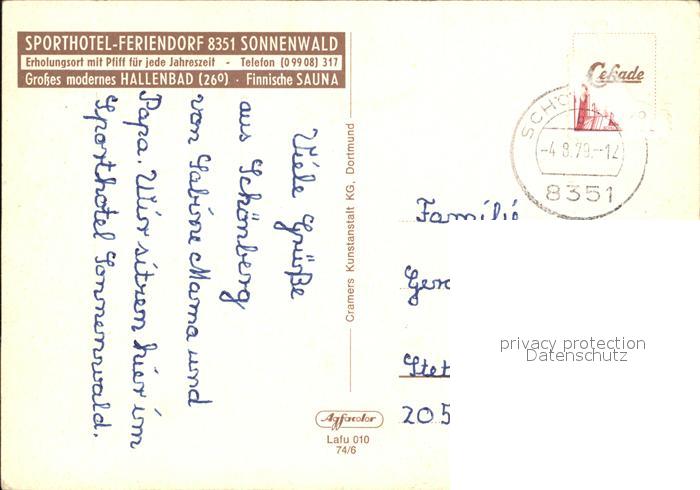 SPORTHOTEL-FERIENDORF 8351 SONNENWALD
Erholungsort mit Pfiff für jede Jahreszeit - Telefon (0 99 08) 317
Großes modernes HALLENBAD (26°) · Finnische SAUNA
Viele Grüße
aus Schönberg
von Sabine Mama und
Papa. Wir sitzen hier im
Sporthotel Sonnenwald.
Cramers Kunstanstalt KG. Dortmund
Agfacolor
Lafu 010
74/6
Cekade
SCHÖ
-4.8.79.-12
8351
Familie
Ger
Stet
205
privacy protection
Datenschutz